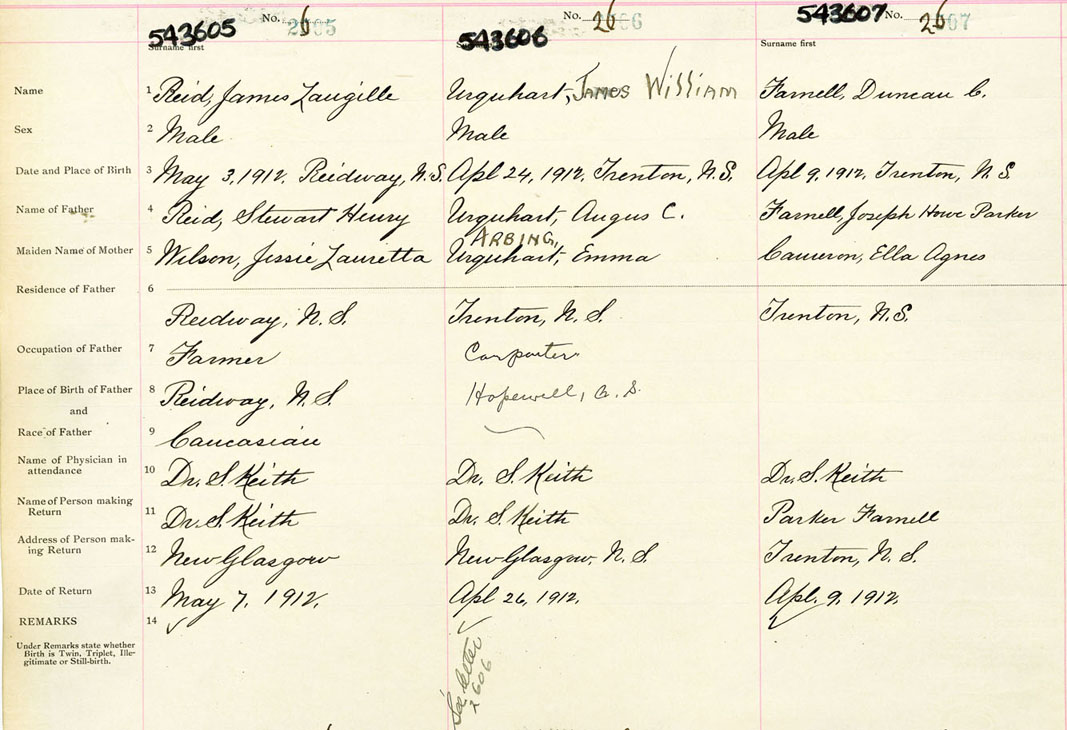 543605 No. 6
543606 No. 26
543607 No. 26
Surname first
Surname first
Surname first
Name 1 Reid, James Urquhart, James William Farnell, Duncan C.
Sex 2 Male Male Male
Date and Place of Birth 3 May 3, 1912. Reidway, N.S. Apl 24, 1912. Trenton, N.S. Apl 9, 1912, Trenton, N.S.
Name of Father 4 Reid, Stewart Henry Urquhart, Angus C. Farnell, Joseph Howe Parker
ARBING,
Maiden Name of Mother 5 Wilson, Jessie Lauretta Urquhart, Emma Cameron, Ella Agnes
Residence of Father 6
Reidway, N.S. Trenton, N.S. Trenton, N.S.
Occupation of Father 7 Farmer Carpenter
Place of Birth of Father 8 Reidway, N.S. Hopewell,
and
Race of Father 9 Caucasian
Name of Physician in
attendance 10 Dr. S. Keith Dr. S. Keith Dr. S. Keith
Name of Person making
Return 11 Dr. S. Keith Dr. S. Keith Parker Farnell
Address of Person mak-
ing Return 12 New Glasgow New Glasgow, N.S. Trenton, N.S.
Date of Return 13 May 7, 1912. Apl 26, 1912. Apl. 9, 1912.
REMARKS 14
Under Remarks state whether
Birth is Twin, Triplet, Ille-
gitimate or Still-birth.
See letter
2606